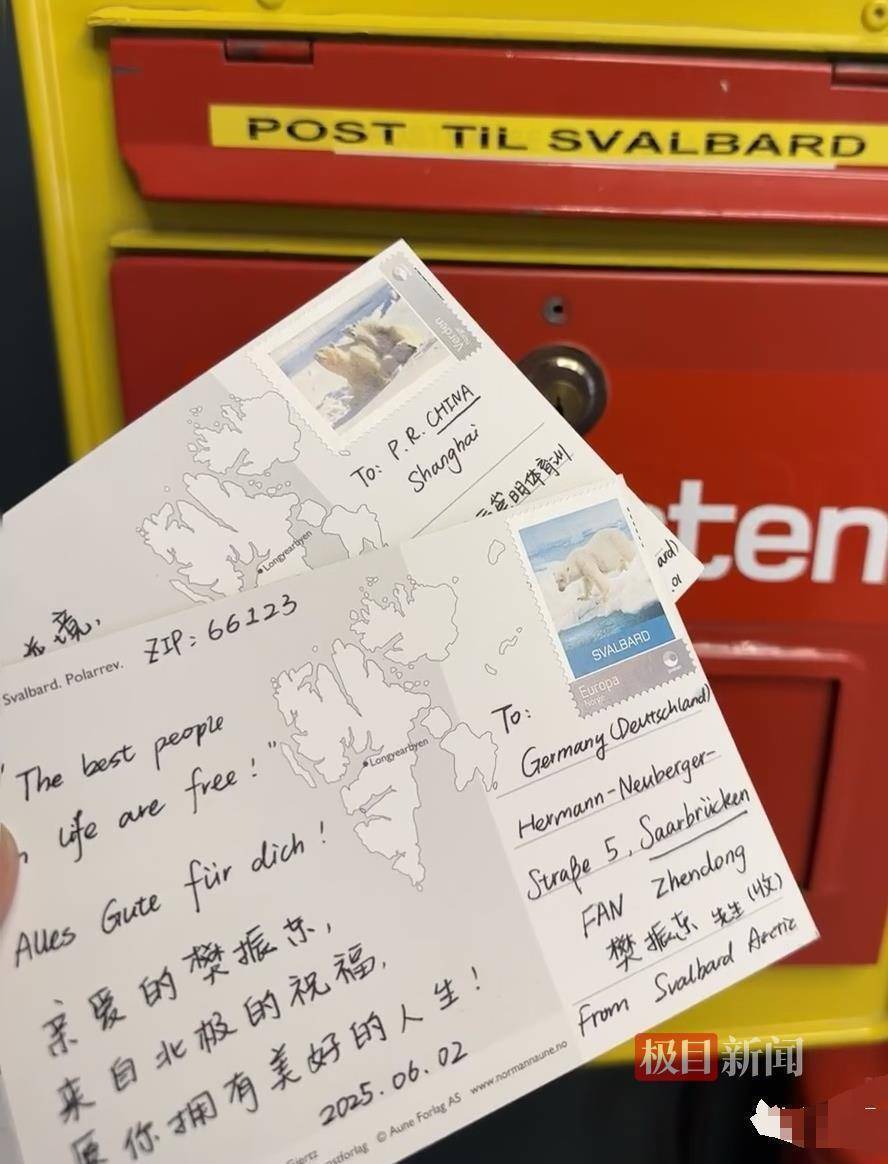 POST TiL SVALBARD
ten
Verden
Norge
To: P.R. CHINA
Shanghai
崇明体育训
Longyearbyen
ard)
Svalbard. Polarrev.
ZIP: 66123
"The best people
life are free!"
Alles Gute für dich!
亲爱的樊振东,
来自北极的祝福,
愿你拥有美好的人生!
2025.06.02
© Aune Forlag AS www.normannaune.no
Longyearbyen
SVALBARD
Europa
Norge
To:
Germany (Deutschland)
Hermann-Neuberger-
Straße 5, Saarbrücken
FAN Zhendong
樊振东 先生 (收)
From Svalbard Arctic
极目新闻